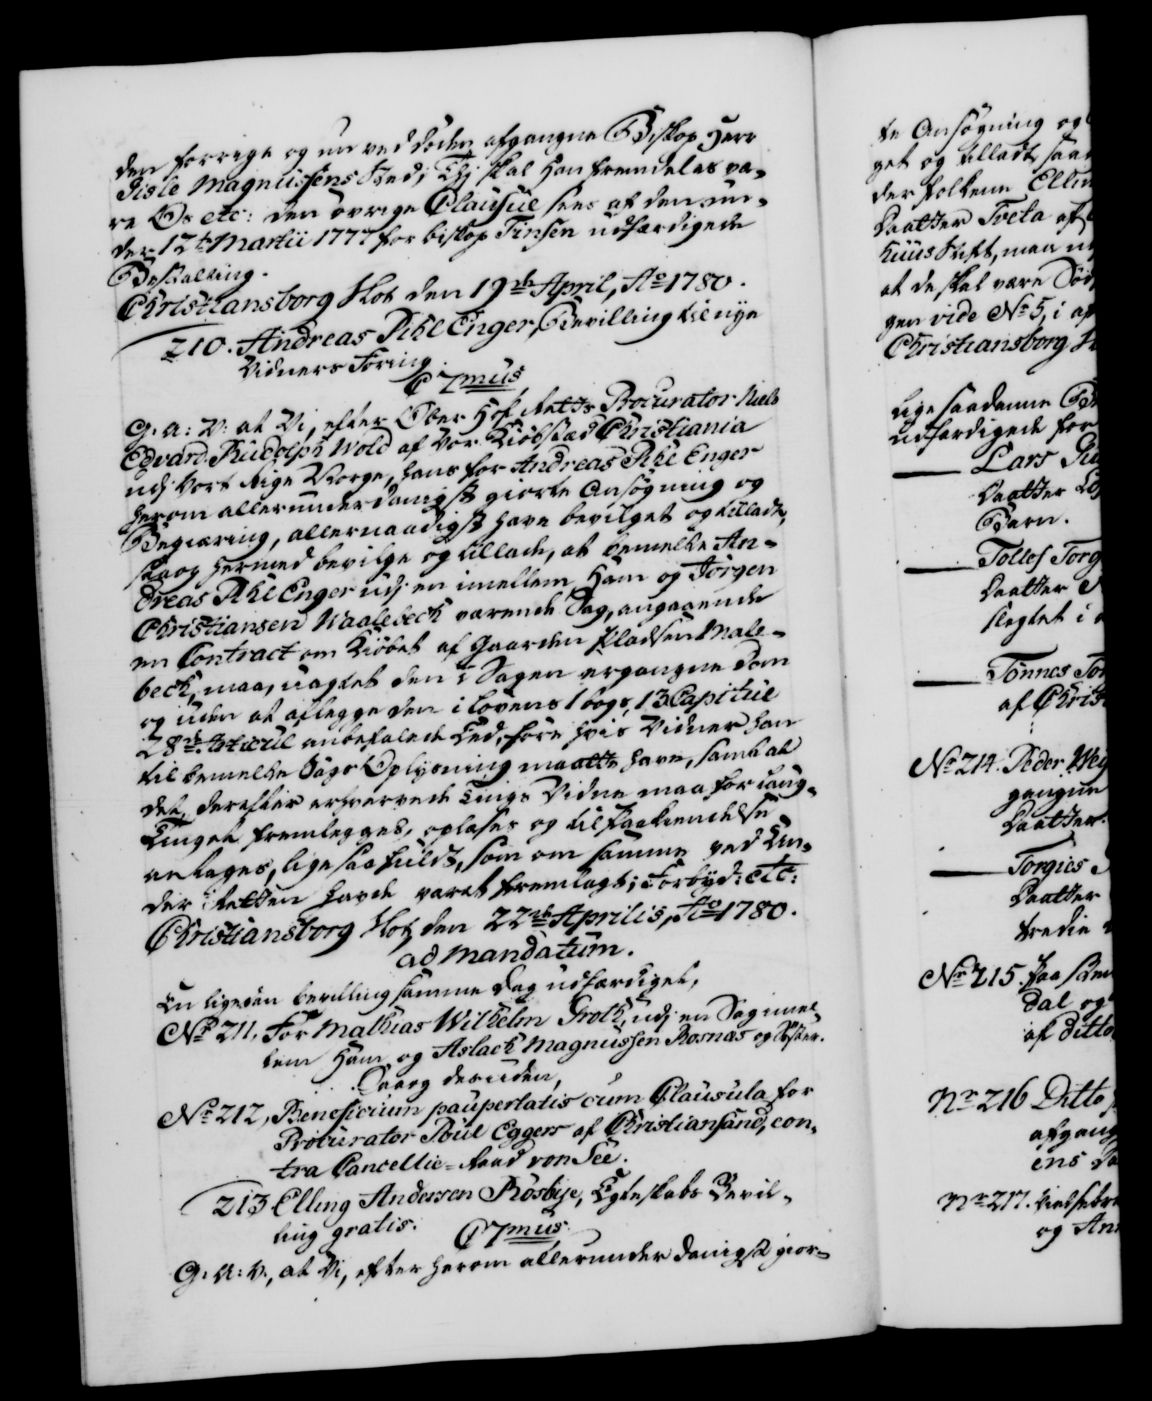 den forrige og nu ved døden afgangne Biskop Herr
Gisle Magnussens Sted; Thi skal han fremdeles va-
re Os etc: den øvrige Clausul sees af den un-
der 12te Martii 1777 for biskop Finsen udfærdigede
Bestalling.
Christiansborg Slot den 19de April, Ao 1780.
210. Andreas Ahl Enger, Bevilling til nye
Vidners Føring.
C 7mus
G: A: V: at Vi, efter Ober Hof Retts Procurator Niels
Edvard Rudolph Wold af Vor Kiøbstad Christiania
udj Vort Rige Norge, hans for Andreas Ahl Enger
herom allerunderdanigst giorte Ansøgning og
Begiæring, allernaadigst have bevilget og tilladt,
saa og hermed bevilge og tillade, at bemelte An-
dreas Ahl Enger udj en imellem ham og Jørgen
Christiansen Waalebeck værende Sag, angaaende
en Contract om Kiøbet af Gaarden Pladsen Male-
beck, maa, uagtet den i Sagen ergangne Dom
og uden at aflegge den i Lovens 1 bogs, 13 Capitul
28de Articul anbefalede Eed, føre hvis Vidner han
til bemelte Sags Oplysning maatte have, samt at
det derefter erhvervede Tings Vidne maa for Laug-
Tinget fremlegges, oplæses og til Paakiendelse
antages, lige saa fuldt, som om samme ved Un-
der Retten havde været fremlagt; Forbyd: etc:
Christiansborg Slot, den 22de Aprilis, Ao 1780.
ad mandatum.
En ligesom bevilling samme dag udfærdiget,
No 211, For Mathias Wilhelm Groth, udj en Sag imel-
lem ham og Aslach Magnussen Rosnæs og Søster.
Saa og desuden,
No 212, Beneficium paupertatis cum Clausula for
Procurator Poul Eggers af Christiansand, con-
tra Cancellie-Raad von See.
213 Elling Andersen Rosbye, Egteskabs Bevil-
ling gratis. C 7mus
G: A: V:, at Vi, efter herom allerunderdanigst gior-
te Ansøgning og
get og tilladt, saa
derfolkene Ellin
Daatter Tveta af
Huus Stift, maa
at de skal være Sød
gen vide No 5, i
Christiansborg
Lige saadanne
udfærdigede for
Lars
Daatter
Barn.
Tollef Torg
Daatter
slegtet i
Tønnes
af Christ
No 214. Peder
gangne
Daatter
Torgies
Daatter
tredie
No 215. Paa
dal og
af ditto
No 216 Ditto
afgang
ens
No 217.
og An